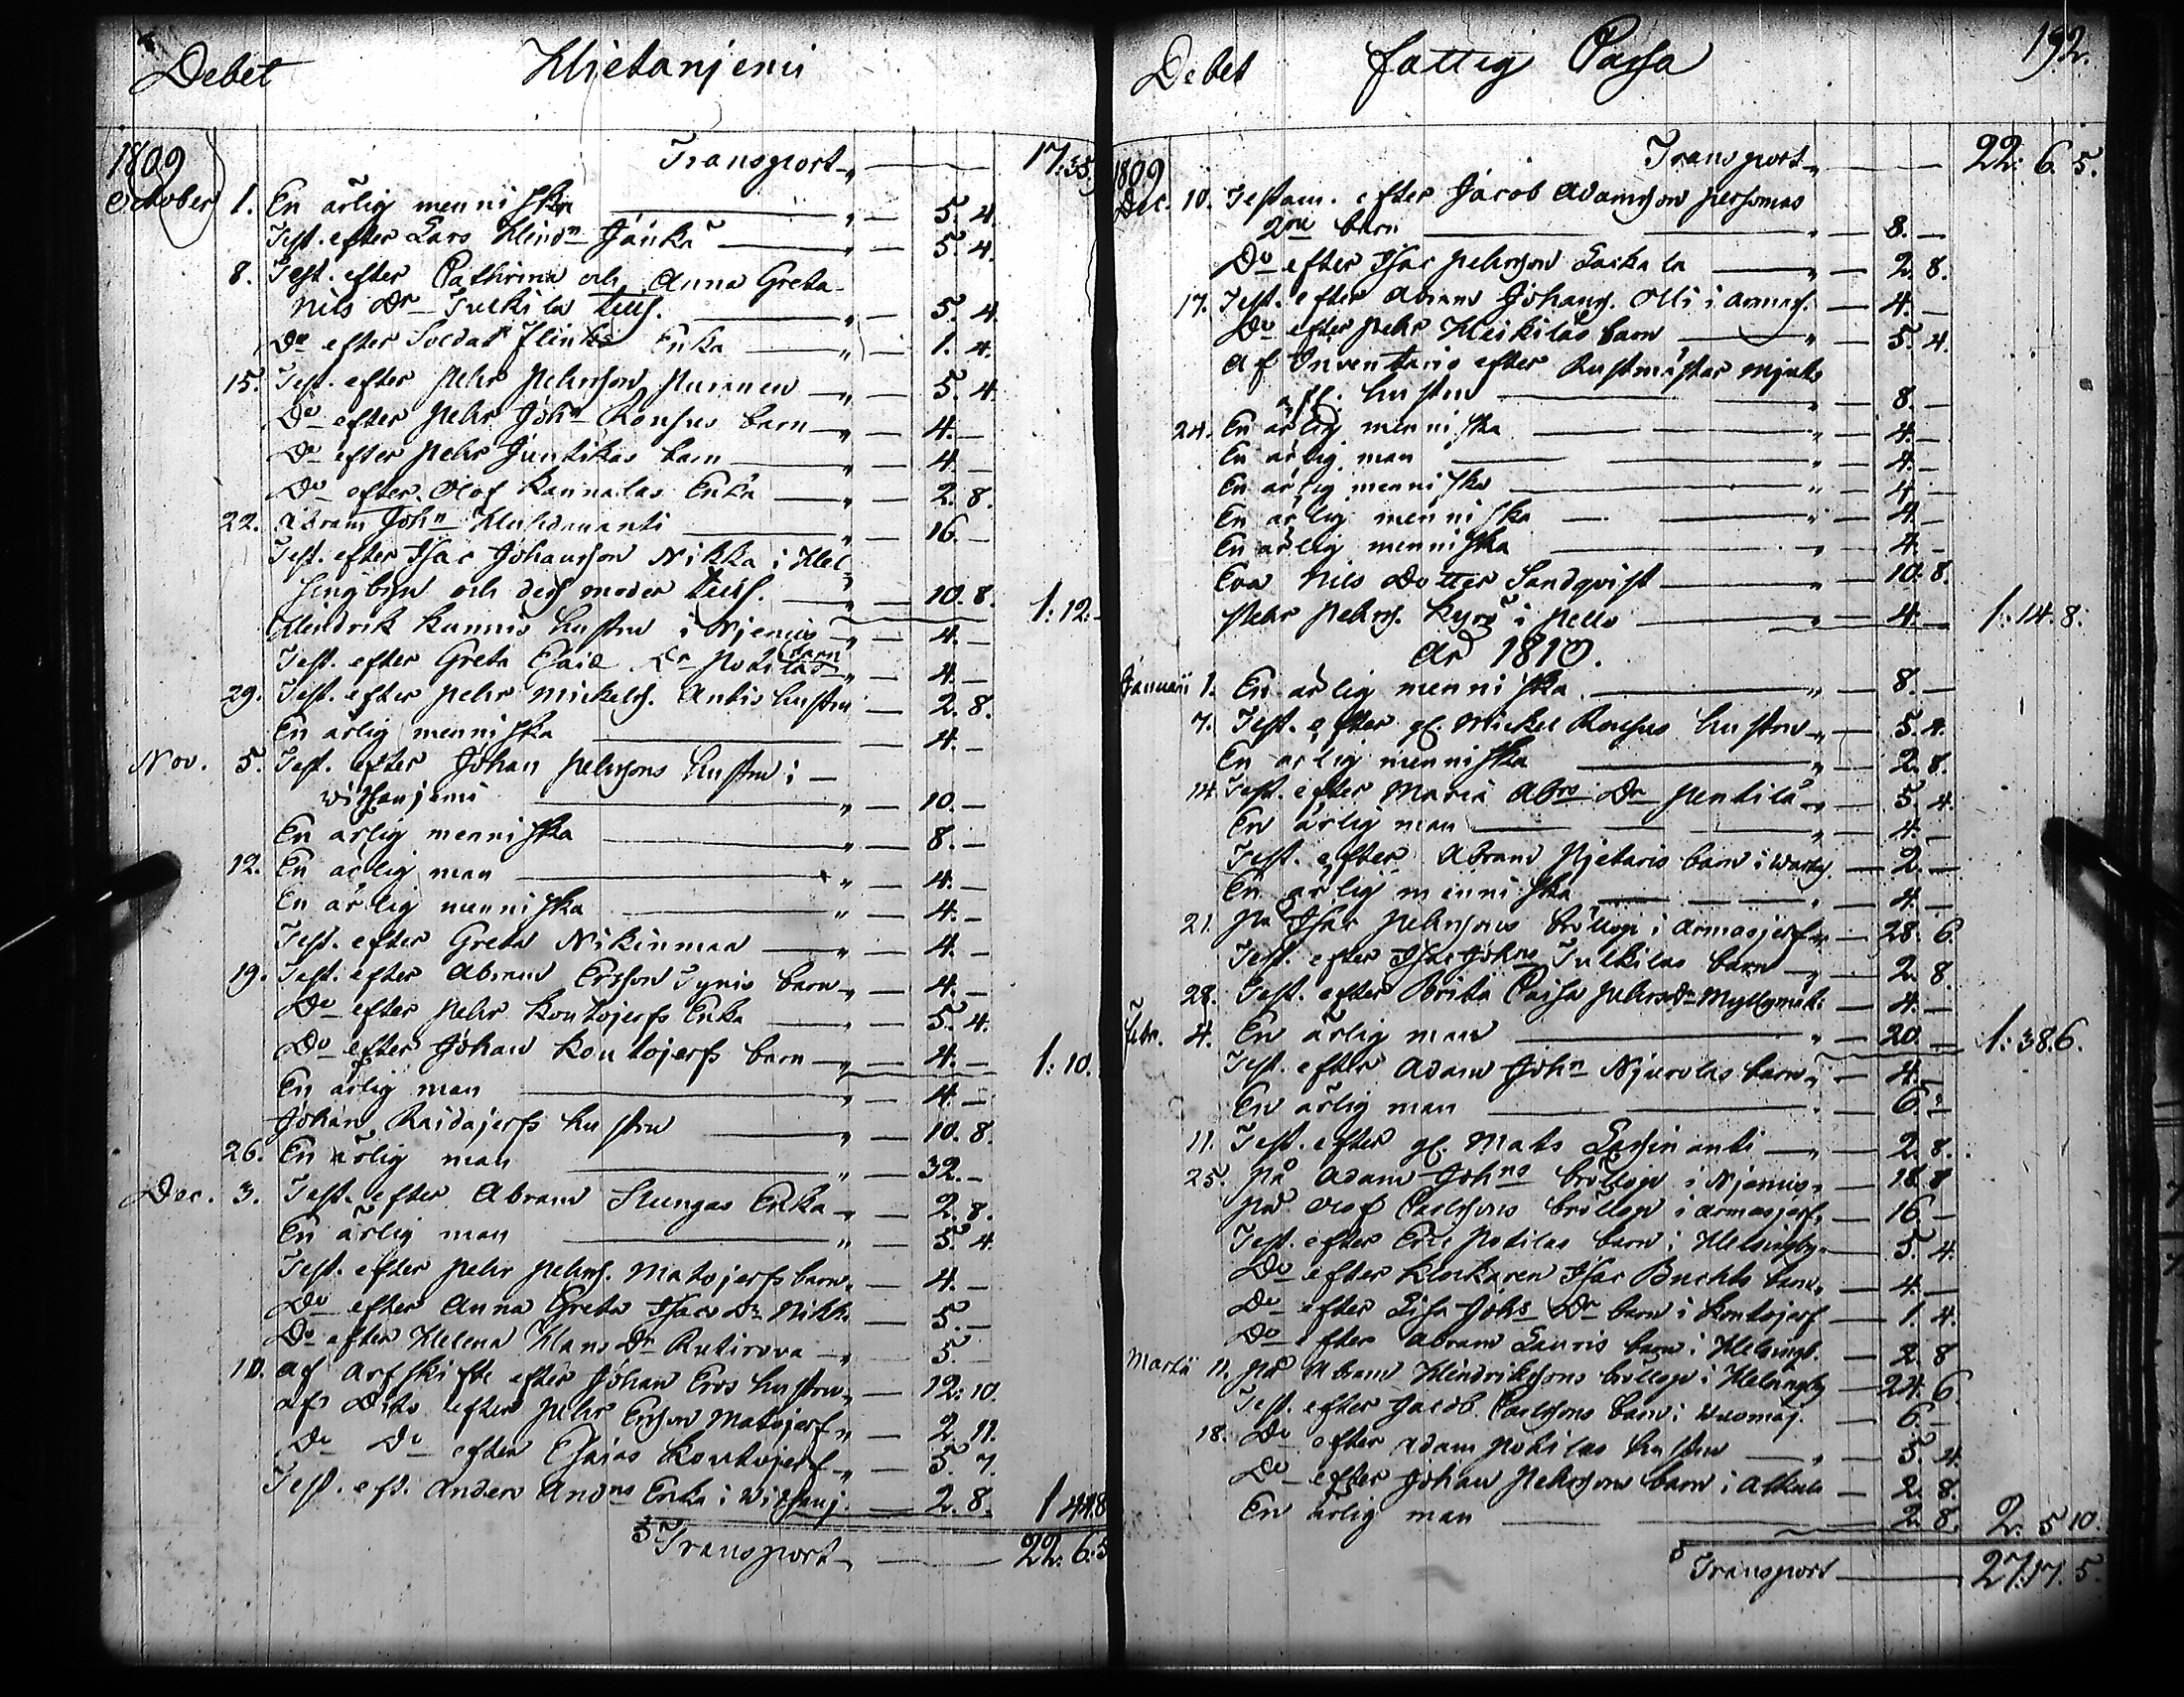 Debet Hjetanjemi
1809 Transport 17:35.
October 1. En ärlig menniska 5. 4.
Test. efter Lars Hindn Jänkä 5. 4.
8. Test. efter Cathrina och Anna Greta
Nils Dr Tulkila tills. 5. 4.
Do efter Soldat Flinks Enka 1. 4.
15. Test. efter Pehr Pehrsson Puranen 5. 4
Do efter Pehr John Rousus barn 4. —
Do efter Pehr Juntikas barn 4. —
Do efter Olof Kannalas Enka 2. 8.
22. Abram John 16. —
Test. efter Isac Johansson Nikka i Hel-
singbyn och dess moder tills. 10. 8. 1: 12: -
Hindrik Kunnis hustru i Njemis 4. —
Test. efter Greta Esaiæ Dr Potilas barn 4. —
29. Test. efter Pehr Mickels. Antis hustru 2. 8.
En ärlig menniska 4. —
Nov. 5. Test. efter Johan Pehrssons hustru i —
Witsanjemi 10. —
En ärlig menniska 8. —
12. En ärlig man 4. —
En ärlig menniska 4. —
Test. efter Greta Nikinmaa 4. —
19. Test. efter Abram Ersson Tynis barn 4. —
Do efter Pehr Kontojerfs Enka 5. 4.
Do efter Johan Kontojerfs barn 4. — 1: 10.
En ärlig man 4. —
Johan Raidajerfs hustru 10. 8.
26. En ärlig man 32. —
Dec. 3. Test. efter Abram Stungas Enka 2. 8.
En ärlig man 5. 4.
Test. efter Pehr Pehrs. Matojerfs barn 4. —
Do efter Anna Greta Isacs Dr Nikka 5. —
Do efter Helena Hans Dr Rutirova 5. —
10. af Arfskifte efter Johan Ers hustru 12: 10.
af Dito efter Pehr Ersson Matojerf 2. 11.
Do Do efter Esaias Kontojerf 5. 7.
Test. eft. Anders Andns Enka i Witsanj. 2. 8. 1 44 8
Transport 22. 6: 5
Debet fattig Cassa 192.
1809 Transport 22: 6. 5.
Dec. 10. Testam. efter Jacob Adamsson Persomas
2ne barn 8. —
Do efter Isac Pehrsson Lackala 2. 8.
17. Test. efter Abram Johans. Olli i Armas. 4. —
Do efter Pehr Heikiläs barn 5. 4.
af Inventario efter Rustmästar
afl. hustru 8. —
24. En ärlig menniska 4. —
En ärlig man 4. —
En ärlig menniska 4. —
En ärlig menniska 4. —
En ärlig menniska 4. —
Eva Nils Dotter Sandqvist 10. 8.
Pehr Pehrs. Kyrö i Pello 4. — 1: 14. 8:
År 1810.
Januarii 1. En ärlig menniska 8. —
7. Test. efter gl. Mickel Rousus hustru 5. 4.
En ärlig menniska 2. 8.
14. Test. efter Maria Abrs Dr Pentilä 5. 4.
En ärlig man 4. —
Test. efter Abram Pjetaris barn i 2. —
En ärlig menniska 4. —
21. På Isac Pehrssons bröllop i Armasjerfvi 28. 6.
Test. efter Isac Johns Tulkilas barn 2. 8.
28. Test. efter Brita Caisa Pehrs Dr Myllymäki 4. —
Febr. 4. En ärlig man 20. — 1: 38. 6.
Test. efter Adam John barn 4. —
En ärlig man 6. —
11. Test. efter gl. Mats 2. 8.
25. På Adam Johns bröllop i Njemis 18. 8
På Olof Carlssons bröllop i Armasjerf. 16. —
Test. efter Eric Potilas barn i Helsingby 5. 4.
Do efter Klockaren Isac Buchts barn 4. —
Do efter Lisa Johs Dr barn i Kontojerf 1. 4.
Do efter Abram Lauris barn i Helsingb. 2. 8
Martii 11. På Abram Hindrikssons bröllop i Helsingby 24. 6
Test. efter Jacob Carlssons barn i 6. —
18. Do efter Adam Potilas hustru 5. 4.
Do efter Johan Pehrssons barn i 2. 8.
En ärlig man 2. 8. 2. 5 10.
Transport 27: 17. 5.